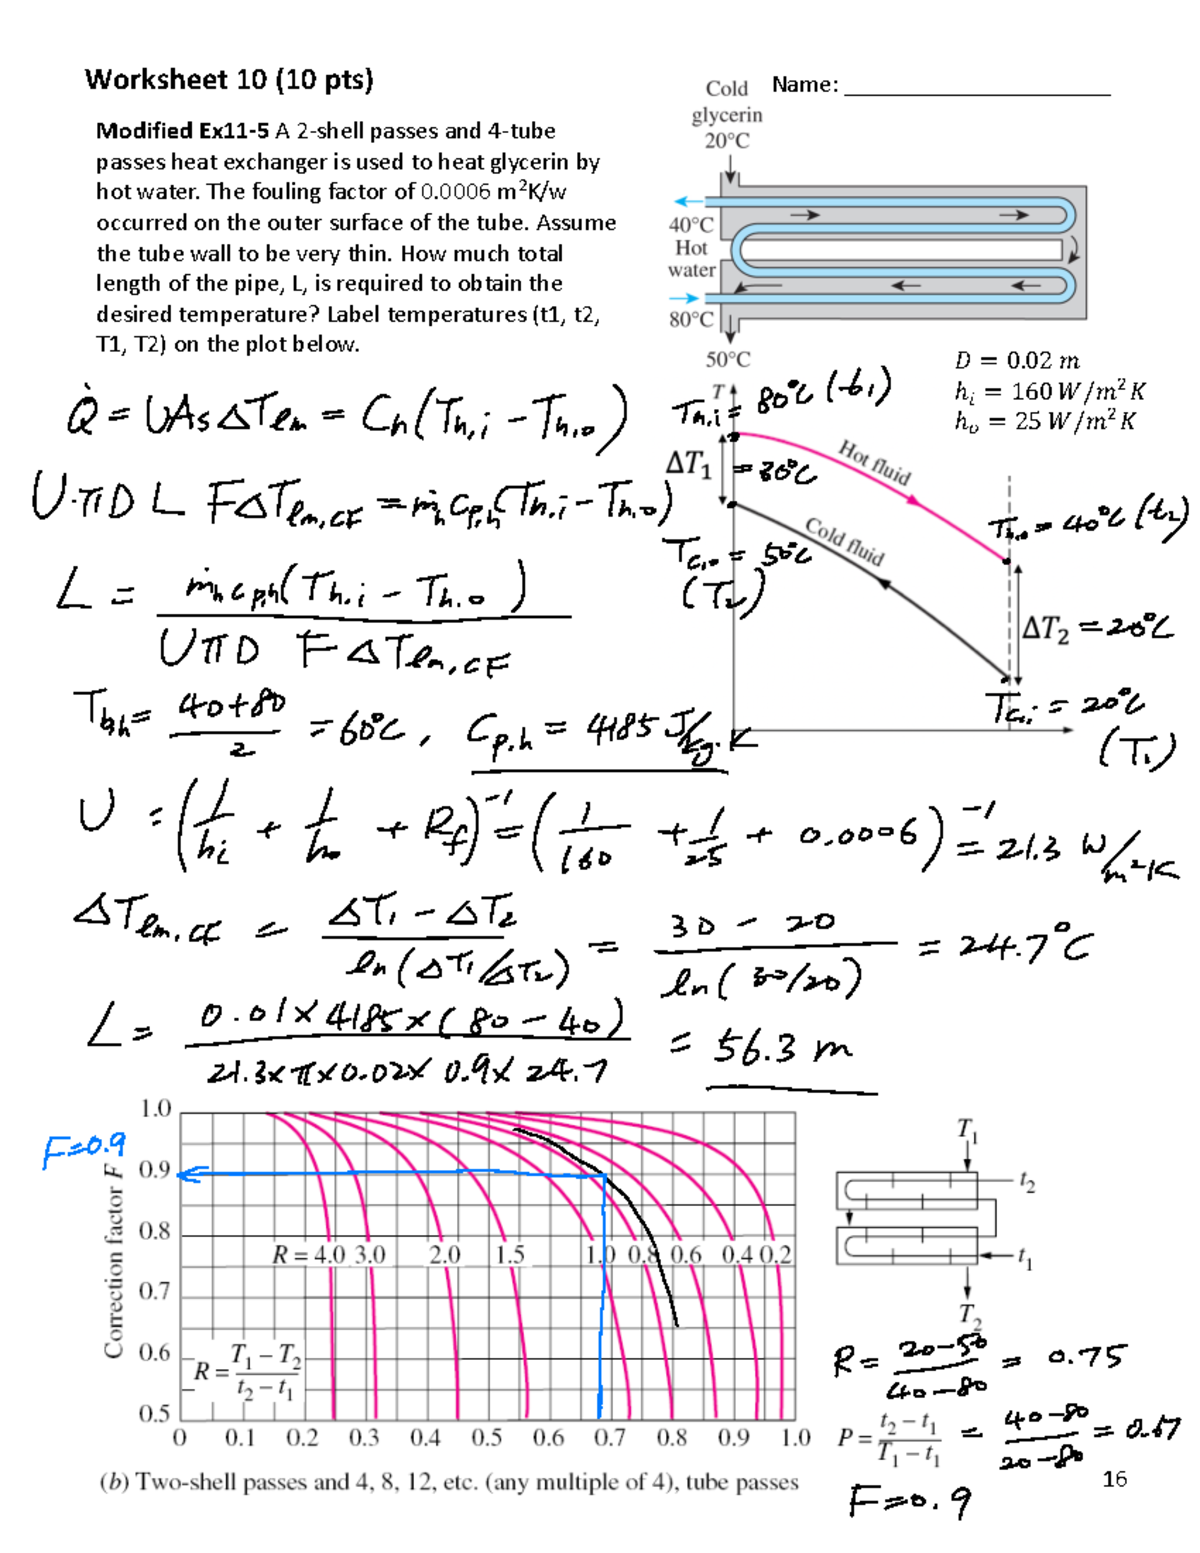 Worksheet 10 (10 pts)
Name:
Modified Ex11-5 A 2-shell passes and 4-tube
passes heat exchanger is used to heat glycerin by
hot water. The fouling factor of 0.0006 m²K/w
occurred on the outer surface of the tube. Assume
the tube wall to be very thin. How much total
length of the pipe, L, is required to obtain the
desired temperature? Label temperatures (t1, t2,
T1, T2) on the plot below.
Cold
glycerin
20°C
40°C
Hot
water
80°C
50°C
D = 0.02 m
hᵢ = 160 W/m² K
hₒ = 25 W/m² K
Q̇ = UAs ΔTlm = Ch(Th,i − Th,o)
U·πD L FΔTlm,CF = ṁh Cp,h(Th,i − Th,o)
L = ṁh cp,h(Th,i − Th,o) / UπD F ΔTlm,CF
T
Th,i = 80°C (t1)
ΔT₁ = 30°C
Hot fluid
Cold fluid
Tc,o = 50°C
(T2)
Th,o = 40°C (t2)
ΔT₂ = 20°C
Tc,i = 20°C
(T1)
Tb,h = 40+80 / 2 = 60°C, Cp,h = 4185 J/kg·K
U = (1/hi + 1/ho + Rf)⁻¹ = (1/160 + 1/25 + 0.0006)⁻¹ = 21.3 W/m²K
ΔTlm,CF = ΔT1 − ΔT2 / ln(ΔT1/ΔT2) = 30 − 20 / ln(30/20) = 24.7°C
L = 0.01 × 4185 × (80 − 40) / 21.3 × π × 0.02 × 0.9 × 24.7 = 56.3 m
F=0.9
Correction factor F
1.0
0.9
0.8
0.7
0.6
0.5
R = 4.0 3.0 2.0 1.5 1.0 0.8 0.6 0.4 0.2
R = T₁ − T₂ / t₂ − t₁
0 0.1 0.2 0.3 0.4 0.5 0.6 0.7 0.8 0.9 1.0
T₁
t₂
t₁
T₂
R = 20−50 / 40−80 = 0.75
P = t₂ − t₁ / T₁ − t₁ = 40−80 / 20−80 = 0.67
F=0.9
(b) Two-shell passes and 4, 8, 12, etc. (any multiple of 4), tube passes
16